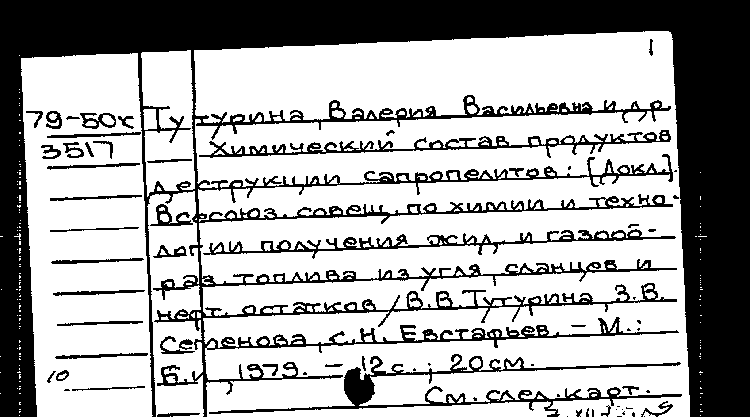 1
79-50к Тутурина, Валерия Васильевна и др
3517 Химический состав продуктов
деструкции сапропелитов: [Докл.]
Всесоюз. совещ. по химии и техно-
логии получения жид. и газооб-
раз. топлива из угля, сланцев и
нефт. остатков / В.В. Тутурина, З.В.
Семенова, С.Н. Евстафьев. - М.:
10 Б.и, 1979. - 12 с.; 20 см.
См. след. карт.